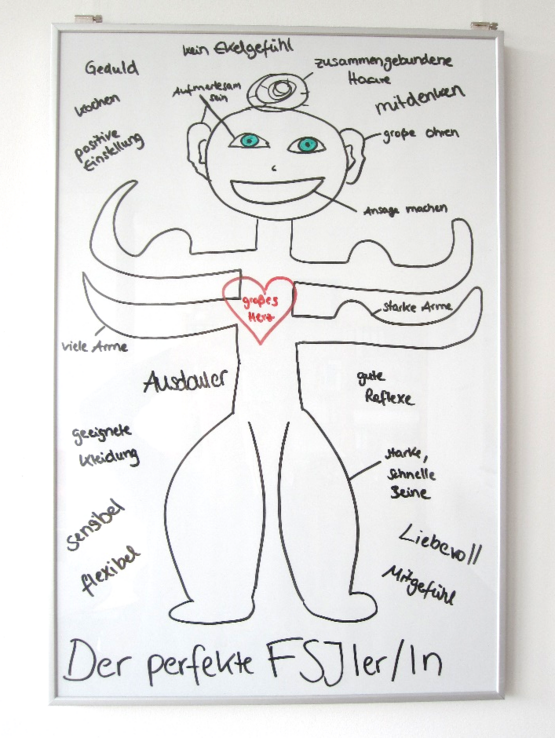 kein Ekelgefühl
Geduld
zusammengebundene
Haare
Aufmerksam
sein
kochen
mitdenken
positive
Einstellung
große Ohren
Ansage machen
großes
Herz
starke Arme
viele Arme
Ausdauer
gute
Reflexe
geeignete
Kleidung
starke,
schnelle
Beine
sensibel
Liebevoll
flexibel
Mitgefühl
Der perfekte FSJler/In